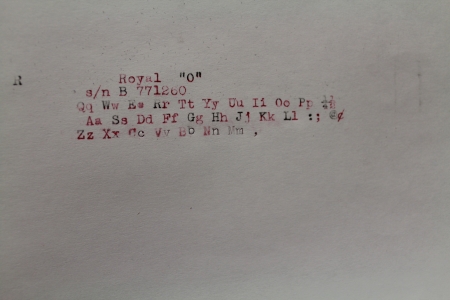 R Royal "O"
s/n B 771260
Qq Ww Ee Rr Tt Yy Uu Ii Oo Pp ½¼
Aa Ss Dd Ff Gg Hh Jj Kk Ll :; @¢
Zz Xx Cc Vv Bb Nn Mm ,